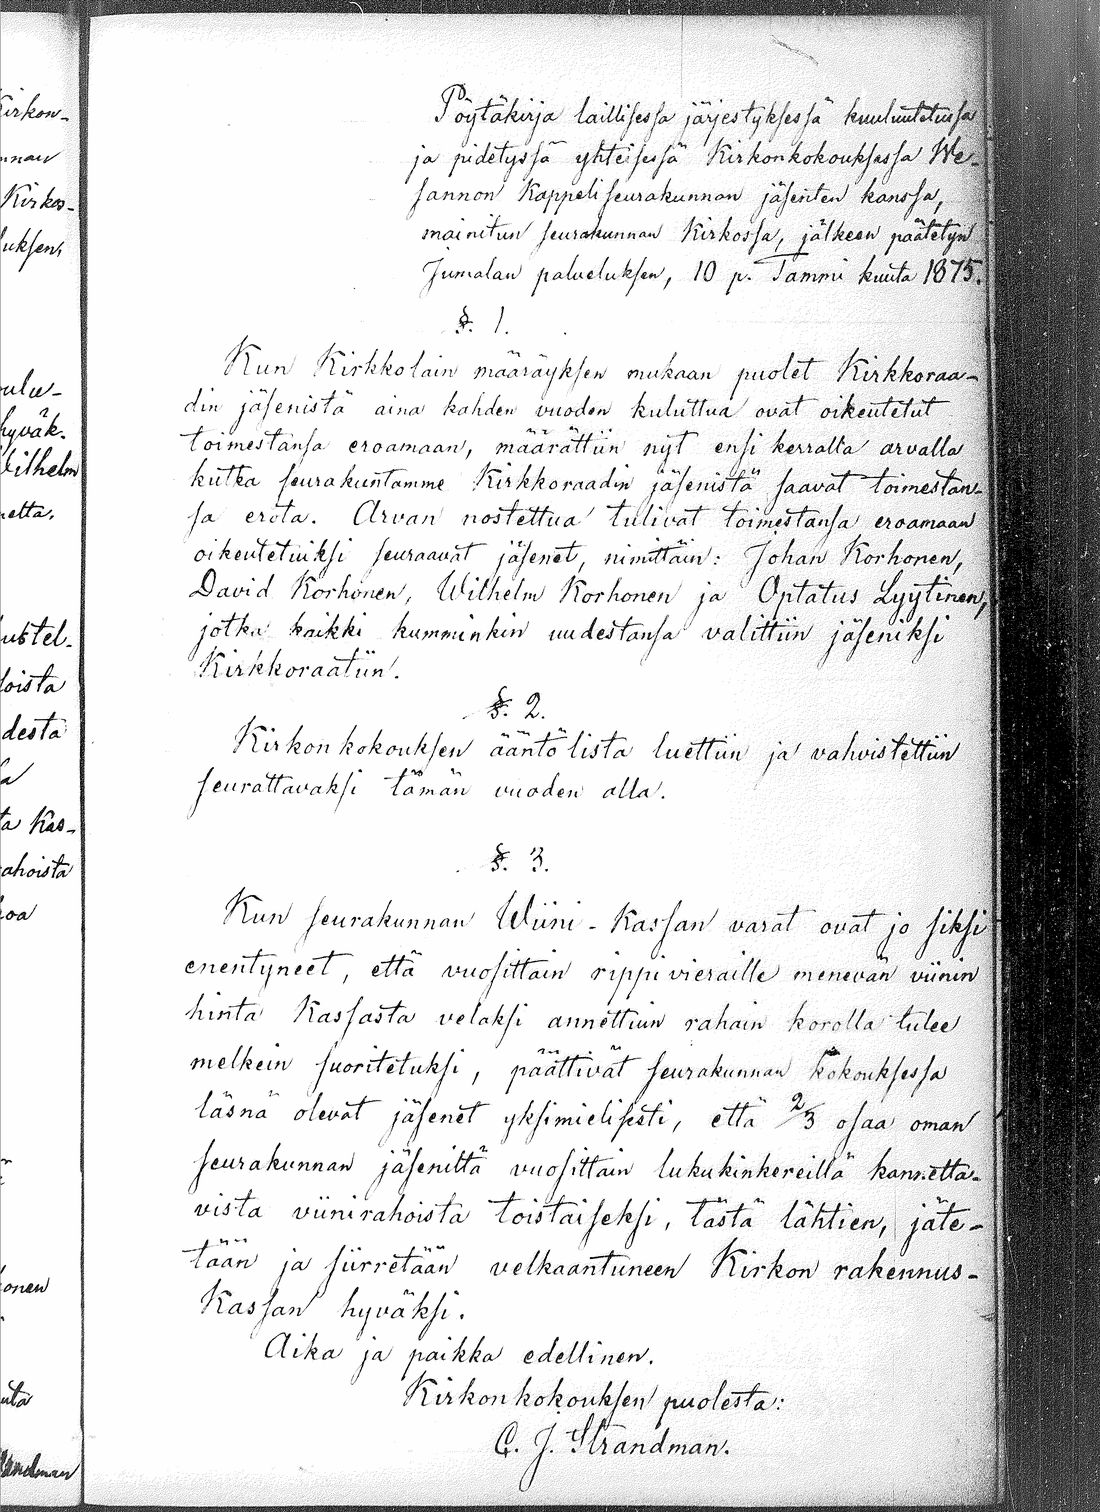 Kirkon-
nnan
Kirkos-
luksen,
oulu-
hyväk.
Vilhelm
netta.
ustel-
loista
desta
ta Kas-
ahoista
koa
onen
uta
Strandman
Pöytäkirja laillisessa järjestyksessä kuulutetussa
ja pidetyssä yhteisessä Kirkonkokouksessa We-
sannon Kappeliseurakunnan jäsenten kanssa,
mainitun seurakunnan Kirkossa, jälkeen päätetyn
Jumalan palveluksen, 10 p. Tammi kuuta 1875.
§. 1.
Kun Kirkkolain määräyksen mukaan puolet Kirkkoraa-
din jäsenistä aina kahden vuoden kuluttua ovat oikeutetut
toimestansa eroamaan, määrättiin nyt ensi kerralta arvalla
kutka seurakuntamme Kirkkoraadin jäsenistä saavat toimestan-
sa erota. Arvan nostettua tulivat toimestansa eroamaan
oikeutetuiksi seuraavat jäsenet, nimittäin: Johan Korhonen,
David Korhonen, Wilhelm Korhonen ja Optatus Lyytinen,
jotka kaikki kumminkin uudestansa valittiin jäseniksi
Kirkkoraatiin.
§. 2.
Kirkonkokouksen ääntölista luettiin ja vahvistettiin
seurattavaksi tämän vuoden alla.
§. 3.
Kun seurakunnan Wiini-Kassan varat ovat jo siksi
enentyneet, että vuosittain rippivieraille menevän viinin
hinta Kassasta velaksi annettiun rahain korolla tulee
melkein suoritetuksi, päättivät seurakunnan kokouksessa
läsnä olevat jäsenet yksimielisesti, että 2/3 osaa oman
seurakunnan jäseniltä vuosittain lukukinkereillä kannetta-
vista viinirahoista toistaiseksi, tästä lähtien, jäte-
tään ja siirretään velkaantuneen Kirkon rakennus-
Kassan hyväksi.
Aika ja paikka edellinen.
Kirkonkokouksen puolesta:
C. J. Strandman.